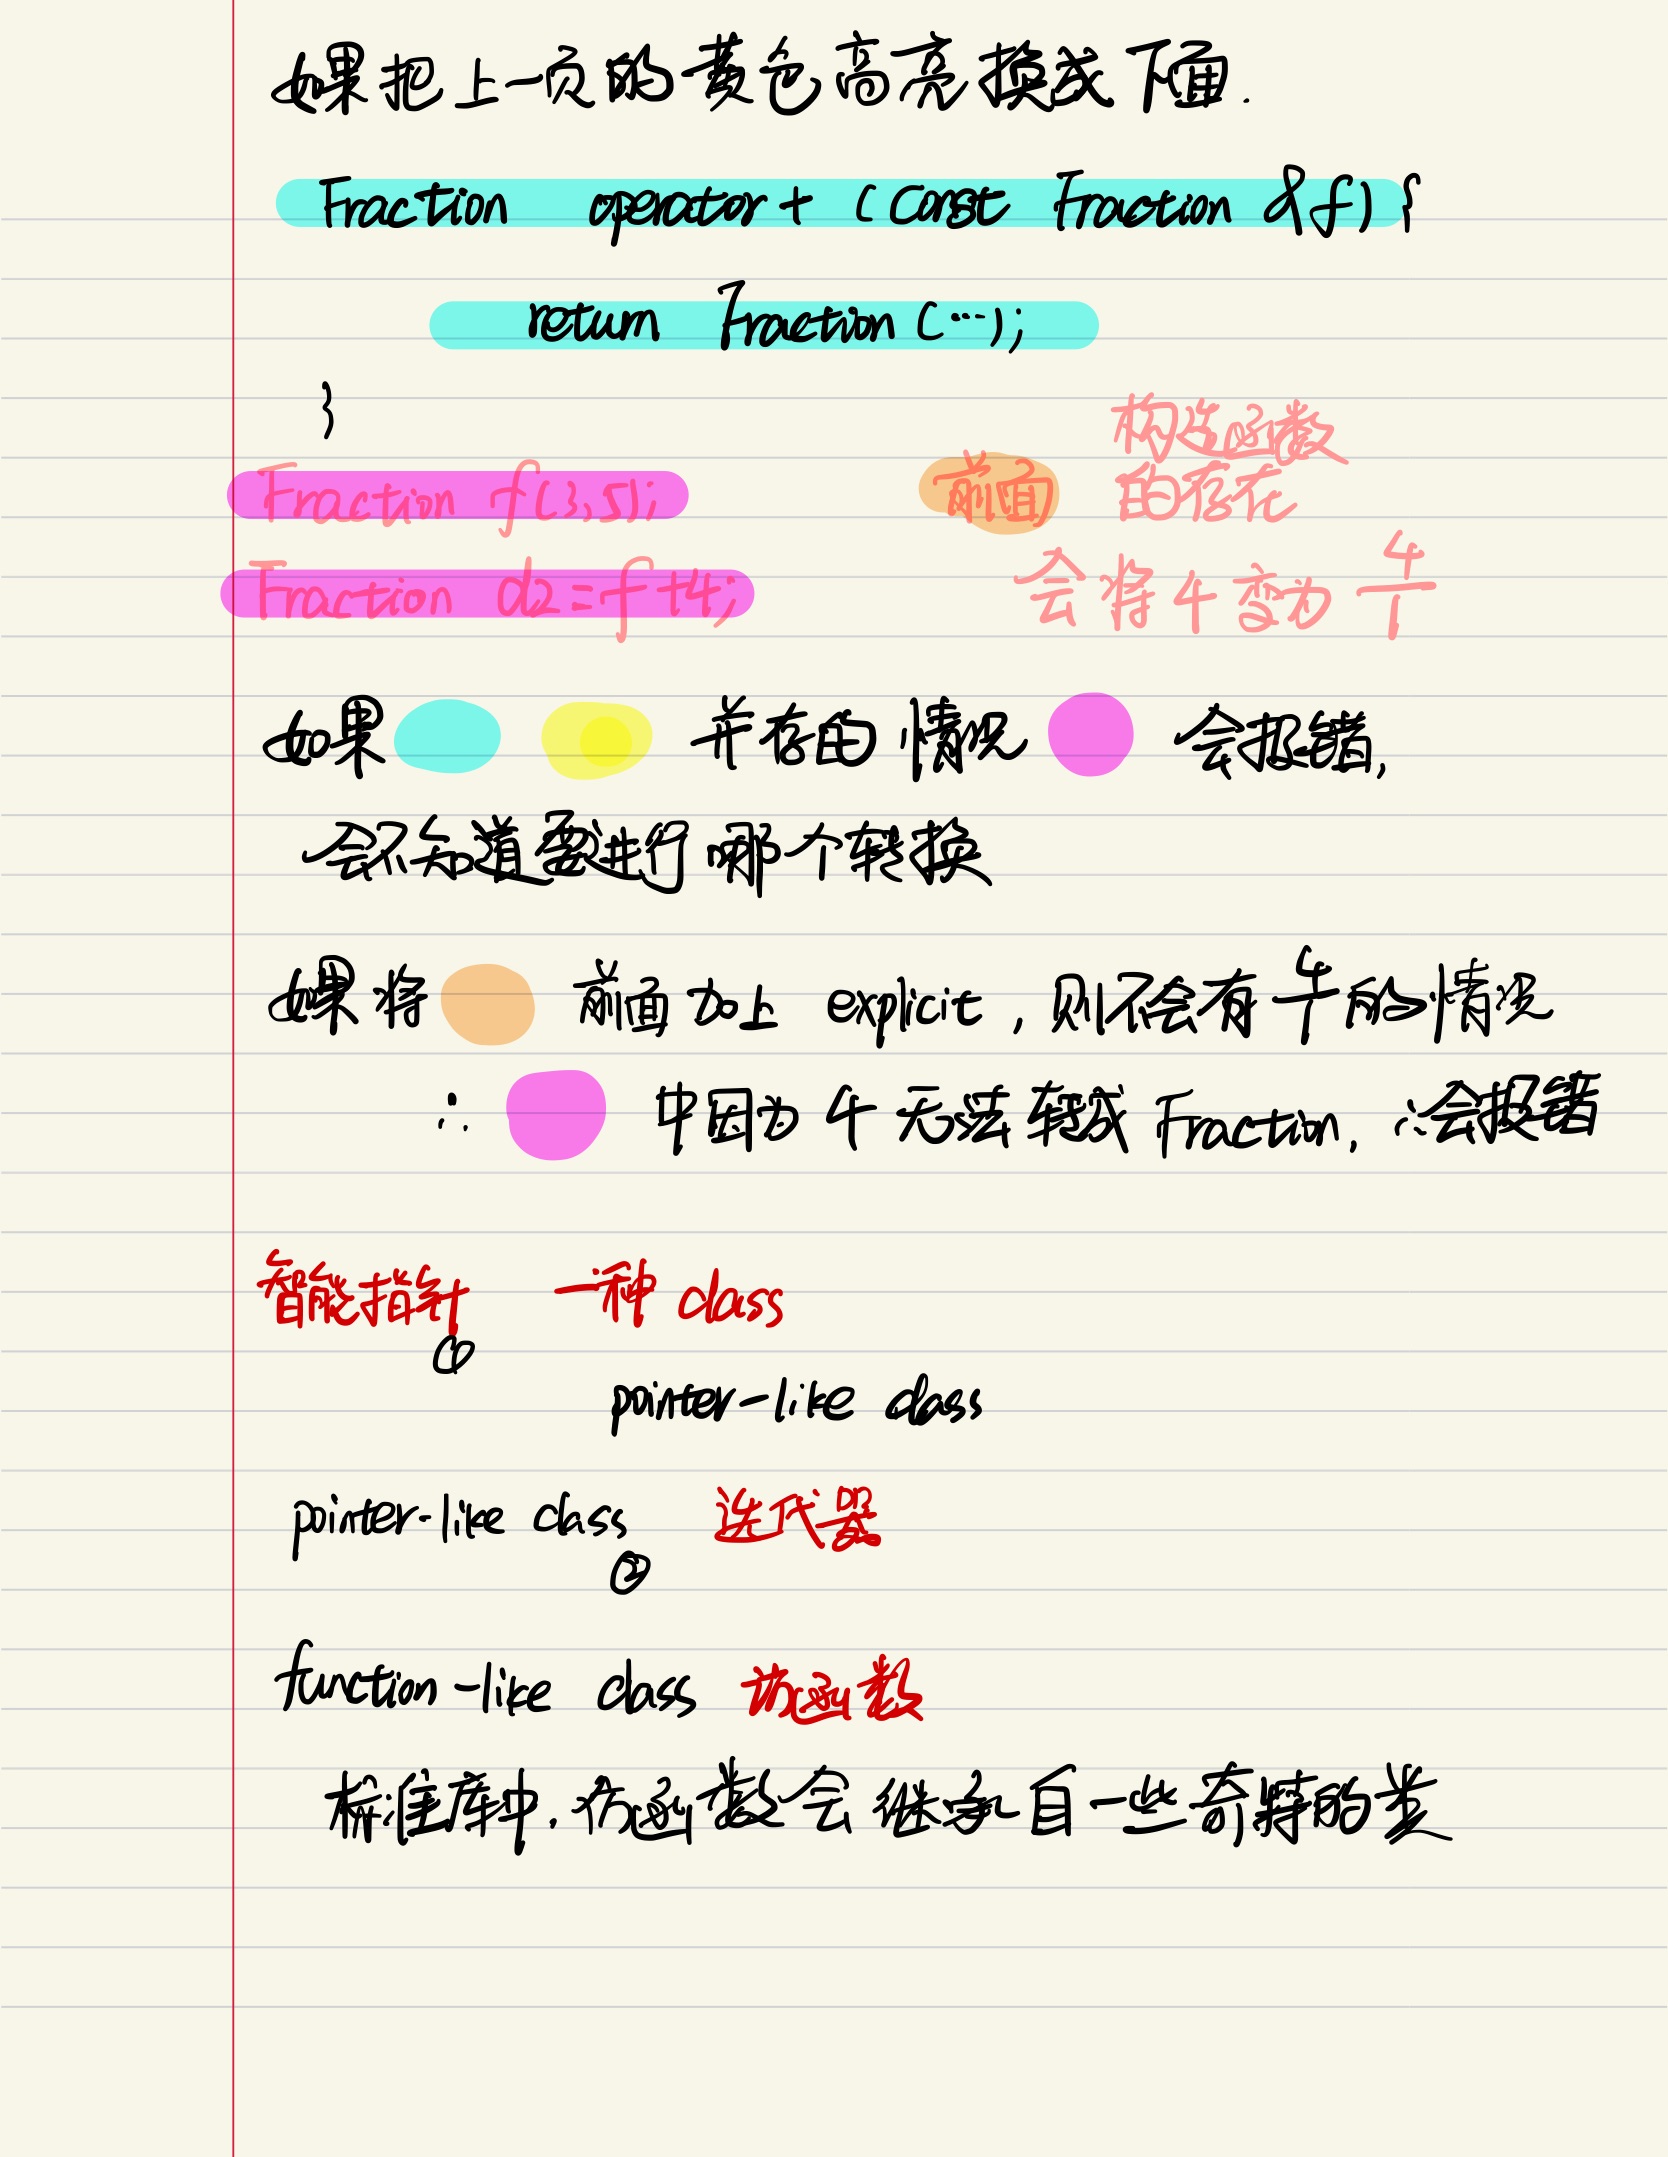 如果把上一页的黄色高亮换成下面.
Fraction operator+ (const Fraction &f) {
return Fraction (…);
}
构造函数
Fraction f(3,5); 前面 的存在
Fraction d2=f+4; 会将4变为 4/1
如果 并存的情况 会报错,
会不知道要进行哪个转换
如果将 前面加上 explicit, 则不会有 4/1 的情况
∴ 中因为4无法转成 Fraction, ∴会报错
智能指针 一种 class
①
pointer-like class
pointer-like class 迭代器
②
function-like class 仿函数
标准库中,仿函数会继承自一些奇特的类